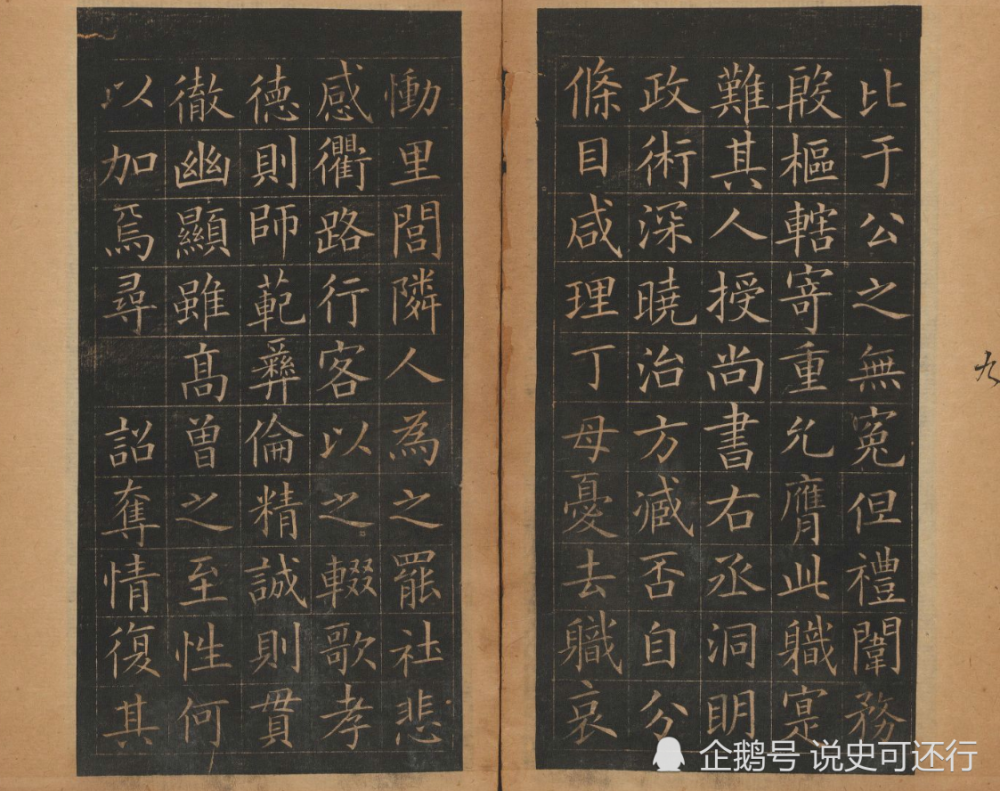 比于公之無冤但禮闈務
殷樞轄寄重允膺此職寔
難其人授尚書右丞洞明
政術深曉治方臧否自分
條目咸理丁母憂去職哀
慟里閭隣人為之罷社悲
感衢路行客以之輟歌孝
德則師範彝倫精誠則貫
徹幽顯雖高曾之至性何
以加焉尋 詔奪情復其
九
企鹅号 说史可还行